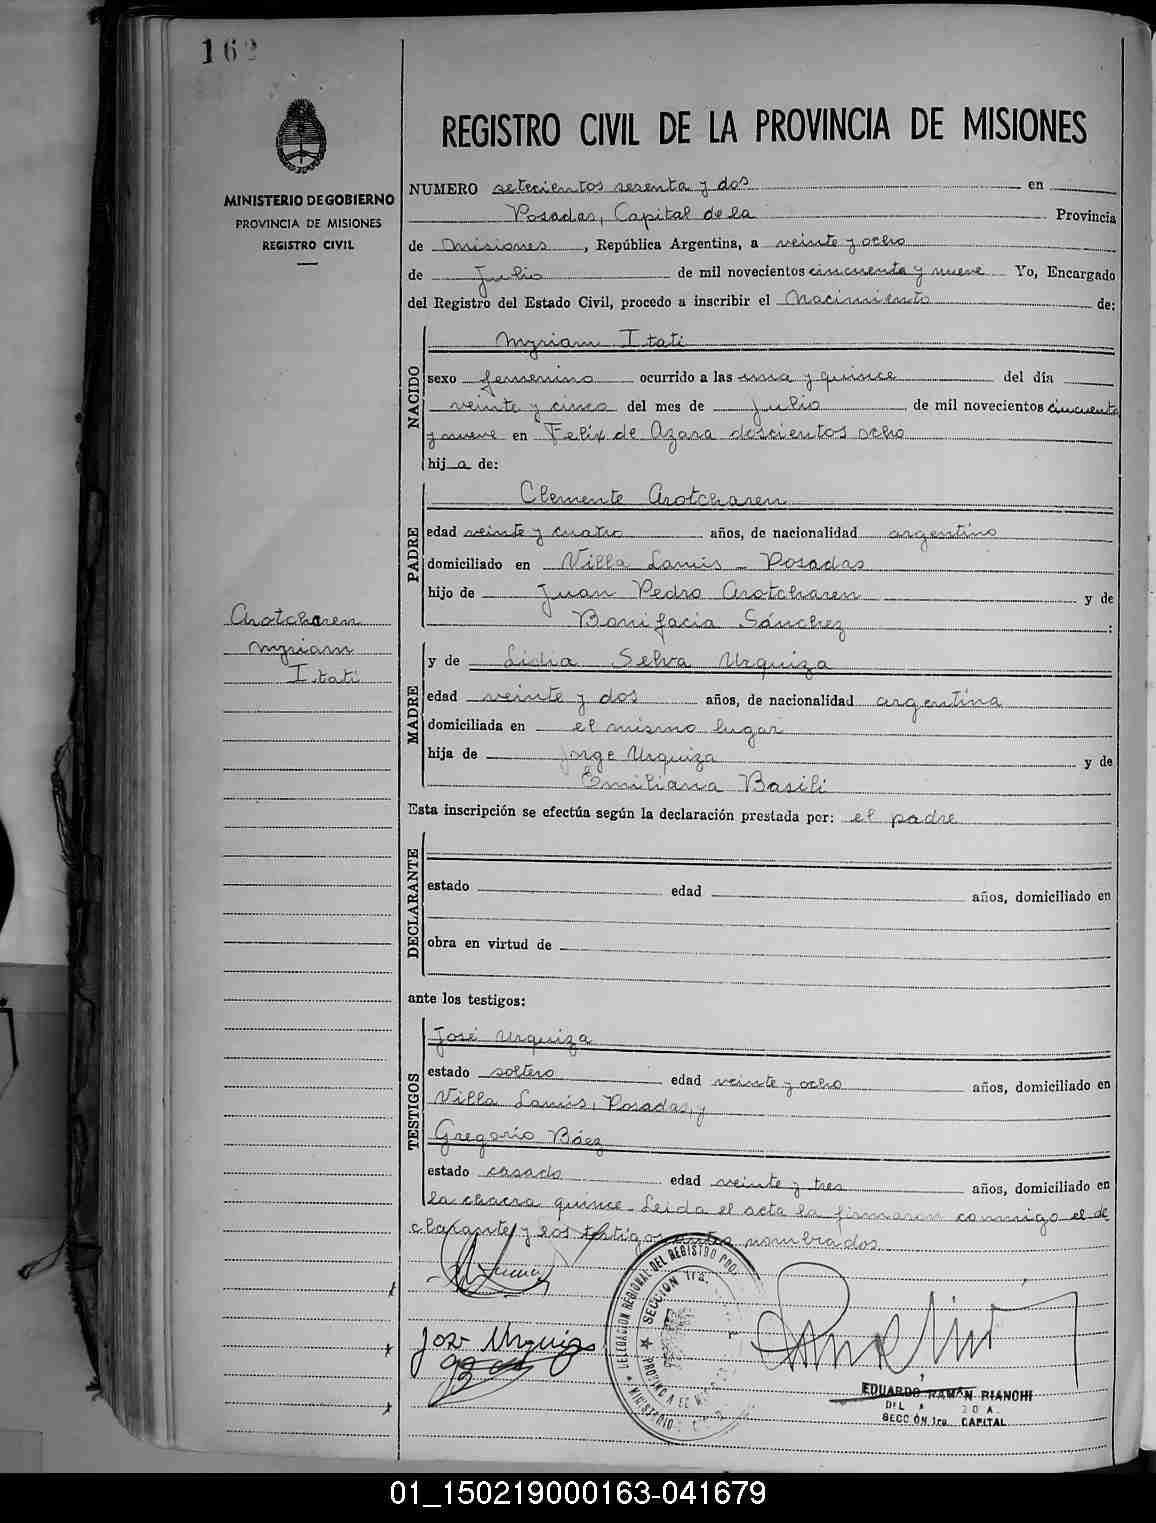 162
MINISTERIO DE GOBIERNO
PROVINCIA DE MISIONES
REGISTRO CIVIL
Arotcharen
Myriam
Itati
REGISTRO CIVIL DE LA PROVINCIA DE MISIONES
NUMERO setecientos sesenta y dos en
Posadas, Capital de la Provincia
de Misiones, República Argentina, a veinte y ocho
de Julio de mil novecientos cincuenta y nueve Yo, Encargado
del Registro del Estado Civil, procedo a inscribir el Nacimiento de:
NACIDO
Myriam Itati
sexo femenino ocurrido a las una y quince del día
veinte y cinco del mes de Julio de mil novecientos cincuenta
y nueve en Felix de Azara doscientos ocho
hija de:
PADRE
Clemente Arotcharen
edad veinte y cuatro años, de nacionalidad argentino
domiciliado en Villa Lanús - Posadas
hijo de Juan Pedro Arotcharen y de
Bonifacia Sánchez :
MADRE
y de Lidia Selva Urquiza
edad veinte y dos años, de nacionalidad argentina
domiciliada en el mismo lugar
hija de Jorge Urquiza y de
Emiliana Basili
Esta inscripción se efectúa según la declaración prestada por: el padre
DECLARANTE
estado edad años, domiciliado en
obra en virtud de
ante los testigos:
TESTIGOS
José Urquiza
estado soltero edad veinte y ocho años, domiciliado en
Villa Lanús, Posadas, y
Gregorio Báez
estado casado edad veinte y tres años, domiciliado en
la chacra quince. Leida el acta la firmaron conmigo el de
clarante y los testigos antes nombrados
José Urquiza
DELEGACION REGIONAL DEL REGISTRO
SECCION 1ra.
MINISTERIO
EDUARDO RAMÓN BIANCHI
SECCIÓN 1ra CAPITAL
01_150219000163-041679